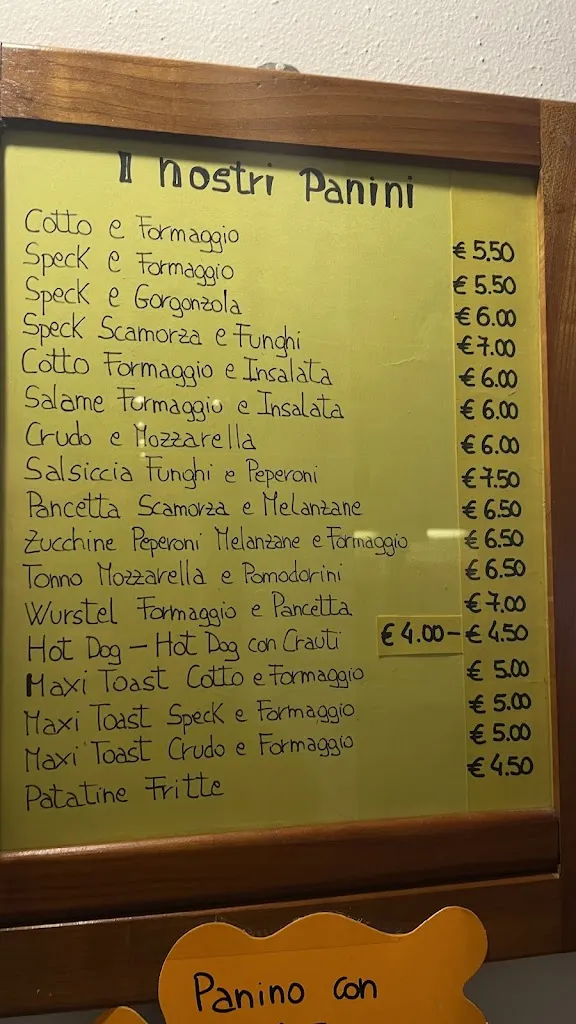 I nostri Panini
Cotto e Formaggio € 5.50
Speck e Formaggio € 5.50
Speck e Gorgonzola € 6.00
Speck Scamorza e Funghi € 7.00
Cotto Formaggio e Insalata € 6.00
Salame Formaggio e Insalata € 6.00
Crudo e Mozzarella € 6.00
Salsiccia Funghi e Peperoni € 7.50
Pancetta Scamorza e Melanzane € 6.50
Zucchine Peperoni Melanzane e Formaggio € 6.50
Tonno Mozzarella e Pomodorini € 6.50
Wurstel Formaggio e Pancetta € 7.00
Hot Dog – Hot Dog con Crauti € 4.00 – € 4.50
Maxi Toast Cotto e Formaggio € 5.00
Maxi Toast Speck e Formaggio € 5.00
Maxi Toast Crudo e Formaggio € 5.00
Patatine Fritte € 4.50
Panino con